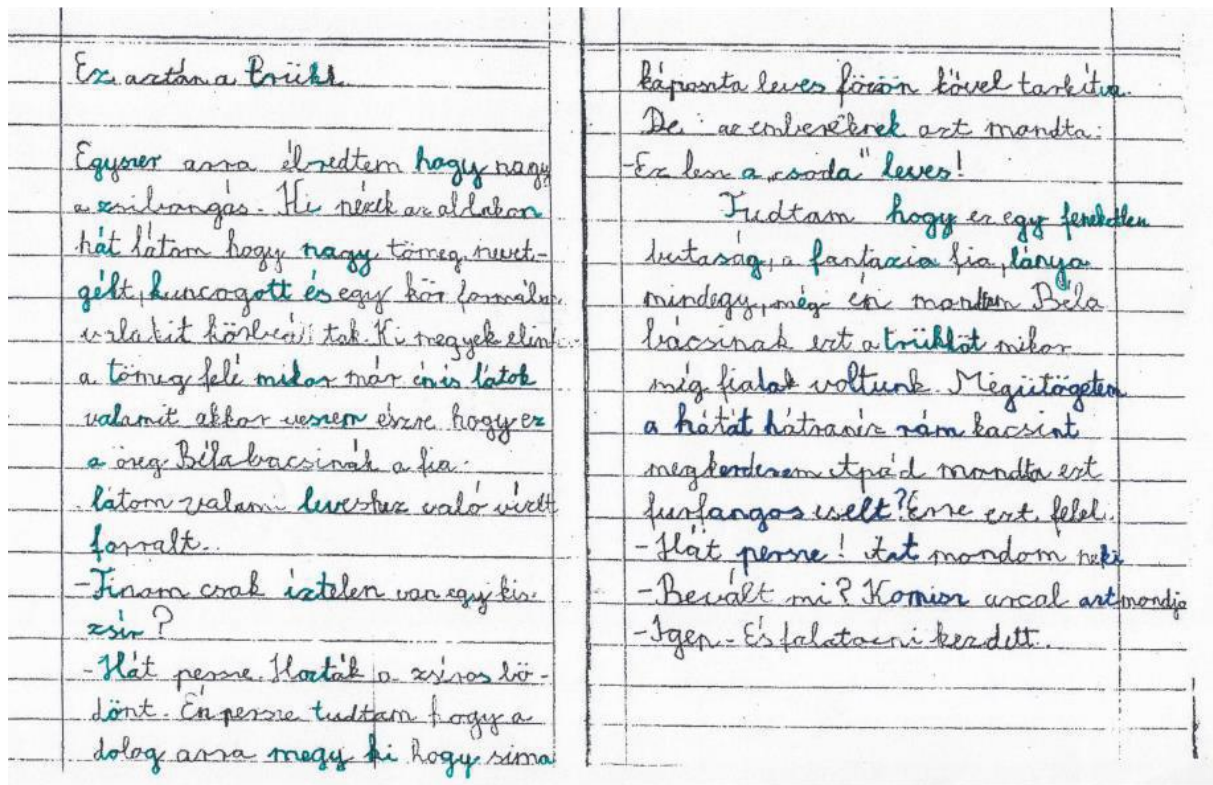 Ez aztán a trükk
Egyszer arra ébredtem hogy nagy
a zsibongás. Ki nézek az ablakon
hát látom hogy nagy tömeg nevet-
gélt, kuncogott és egy kör formába
valakit körbeál tak. Ki megyek elin
a tömeg felé mikor már én is látok
valamit akkor veszem észre hogy ez
a öreg Béla bacsinák a fia.
látom valami leveshez való vizet
forralt.
-Finom csak íztelen van egy kis
zsír?
-Hát persze. Hozták a zsíros bö-
dönt. Én persze tudtam hogy a
dolog arra megy ki hogy sima
káposzta leves főzőn kővel tarkítva.
De az embereknek azt mondta:
-Ez lesz a „csoda" leves!
Tudtam hogy ez egy feneketlen
butaság, a fantázia fia, lánya
mindegy, még én mondtam Béla
bácsinak ezt a trükköt mikor
még fialak voltunk. Megütögetem
a hátát hátraníz rám kacsint
megkerdezem Apád mondta ezt
furfangos cselt? Erre ezt felel.
-Hát persze! Azt mondom neki
-Bevált mi? Komisz arcal azt mondja
-Igen- És falatozni kezdett.